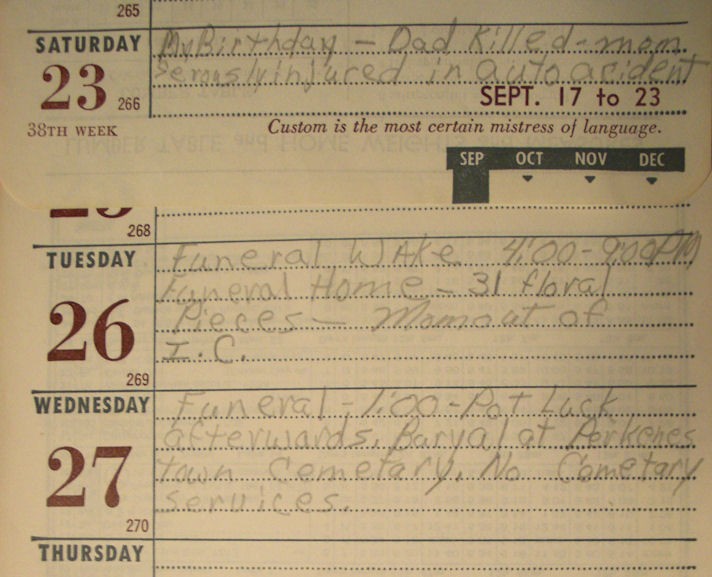 265
SATURDAY My Birthday - Dad Killed - mom
23 Serously injured in auto acident
266 SEPT. 17 to 23
38TH WEEK Custom is the most certain mistress of language.
SEP OCT NOV DEC
25
268
TUESDAY Funeral WAke 4:00-9:00PM
26 Funeral Home - 31 floral
Pieces - Mom out of
I.C.
269
WEDNESDAY Funeral - 1:00 - Pot Luck
27 afterwards. Buryal at Perkenes
town Cemetary. No Cometary
services.
270
THURSDAY